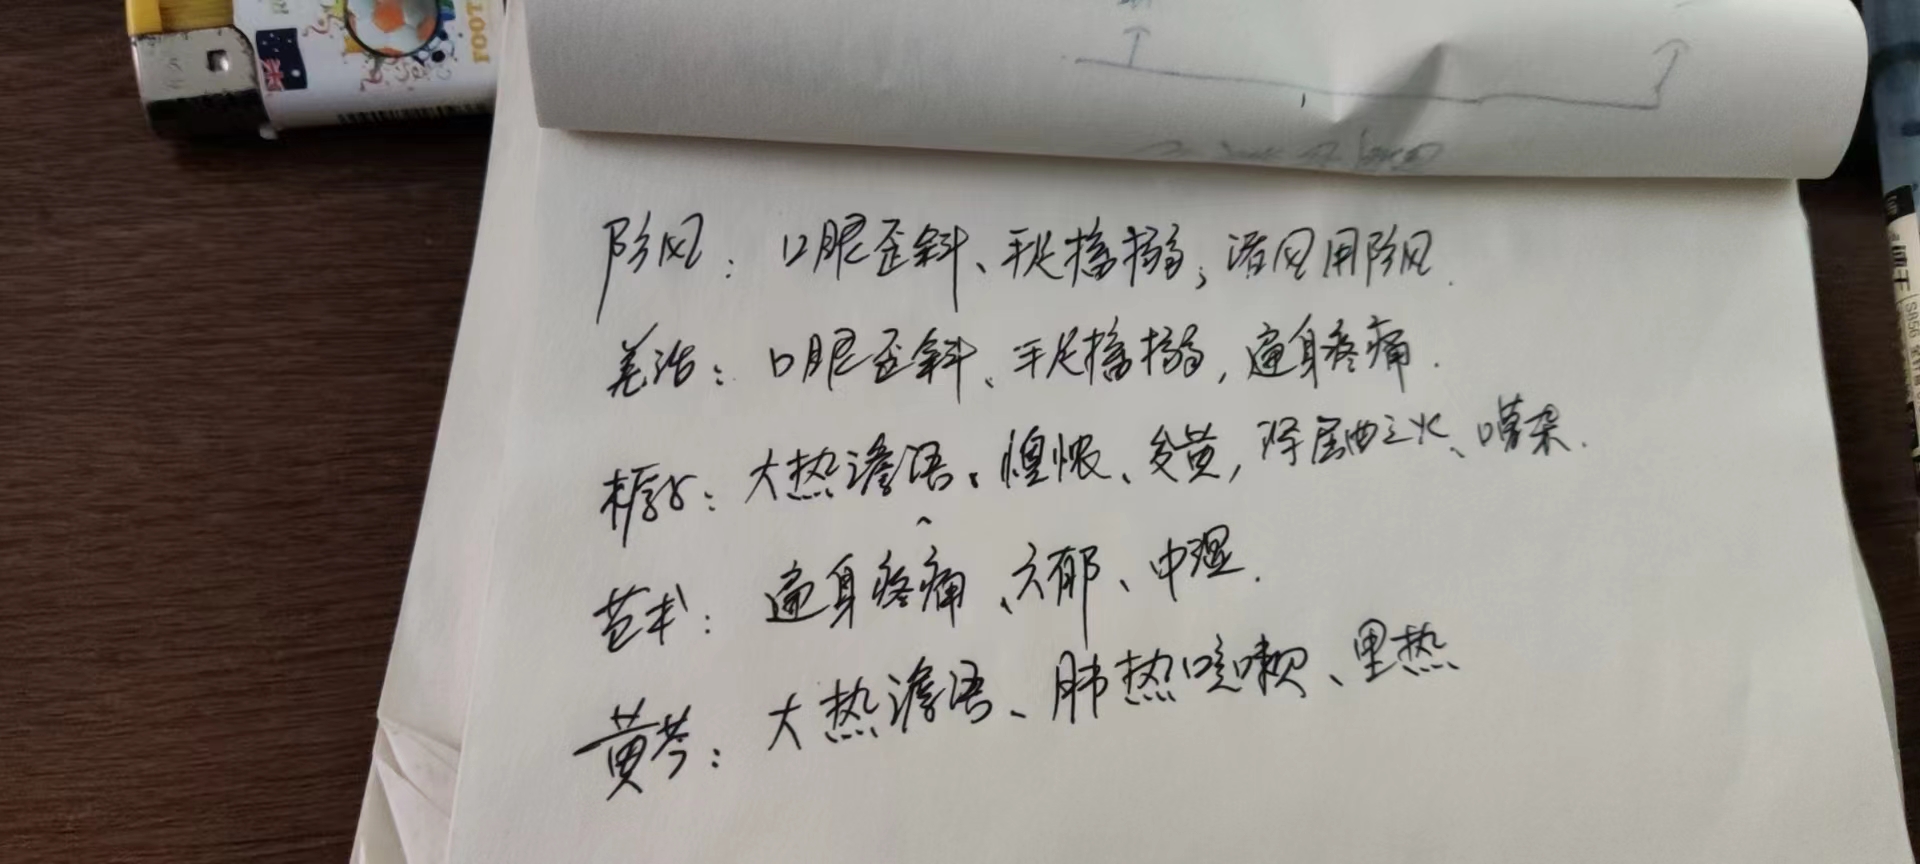 FOOT
防风：口眼歪斜、手足搐搦，诸风用防风.
羌活：口眼歪斜、手足搐搦，遍身疼痛.
栀子：大热谵语、懊憹、发黄，降屈曲之火、嘈杂.
苍术：遍身疼痛、六郁、中湿.
黄芩：大热谵语、肺热咳嗽、里热